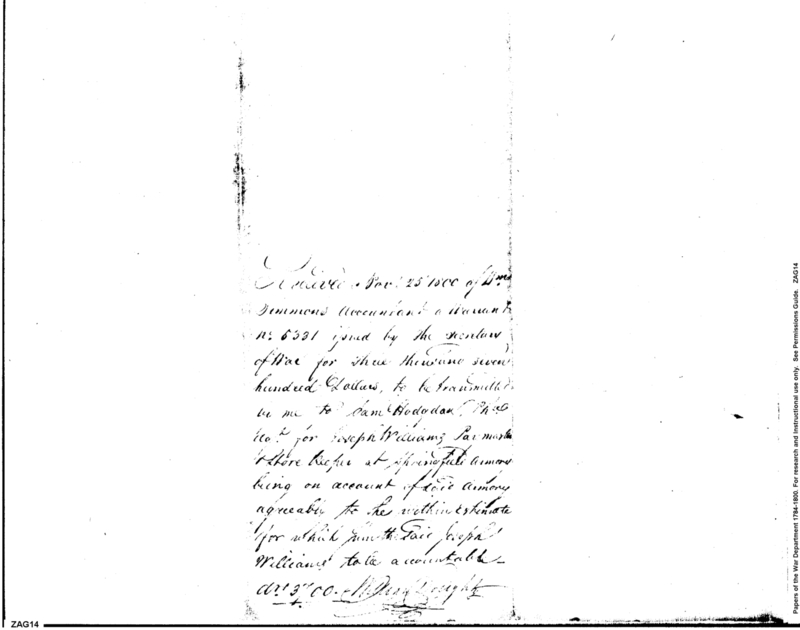 Received Nov. 25 1800 of Wm
Simmons Accountant a Warrant
No. 5331 issued by the Secretary
of War for three thousand seven
hundred Dollars, to be transmitted
by me to Saml Hodgdon,
for Joseph Williams Paymaster
& Store Keeper at Springfield Armory
being on account of said Armory
agreeably to the within Estimate
for which sum the said Joseph
Williams to be accountable
Drs 3700.
ZAG14
Papers of the War Department 1784-1800. For research and instructional use only. See Permissions Guide. ZAG14